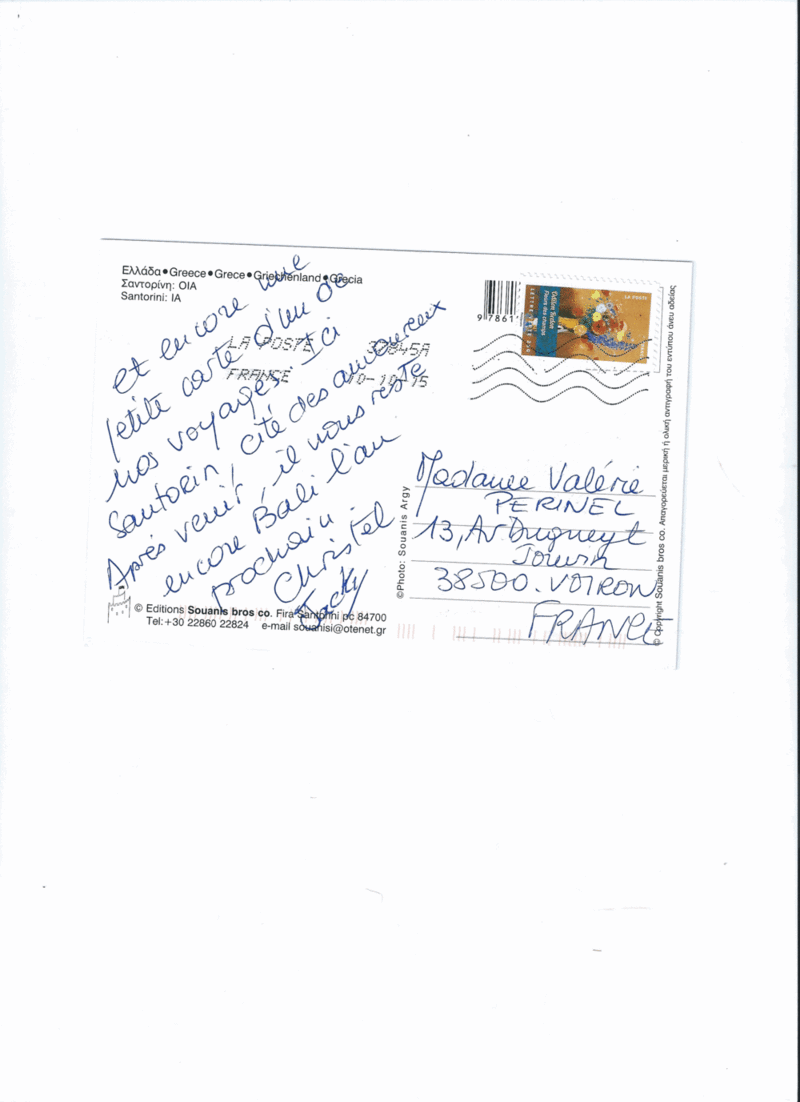 Ελλάδα•Greece•Grece•Griechenland•Grecia
Σαντορίνη: ΟΙΑ
Santorini: IA
et encore une
petite carte d'un de
nos voyages Ici
Santorin, cité des amoureux
Après venir, il nous reste
encore Bali l'an
prochain.
Christel
Jacky
LA POSTE 39845A
FRANCE 10-10-15
© Editions Souanis bros co. Fira Santorini pc 84700
Tel:+30 22860 22824 e-mail souanisi@otenet.gr
©Photo: Souanis Argy
97861
LA POSTE
Odilon Redon
Fleurs des champs
LETTRE VERTE 20g
Madame Valérie
PERINEL
13, Av Dugueyt
Jouvin
38500. VOIRON
FRANCE
© Copyright Souanis bros co. Απαγορεύεται μερική ή ολική αντιγραφή του εντύπου άνευ αδείας